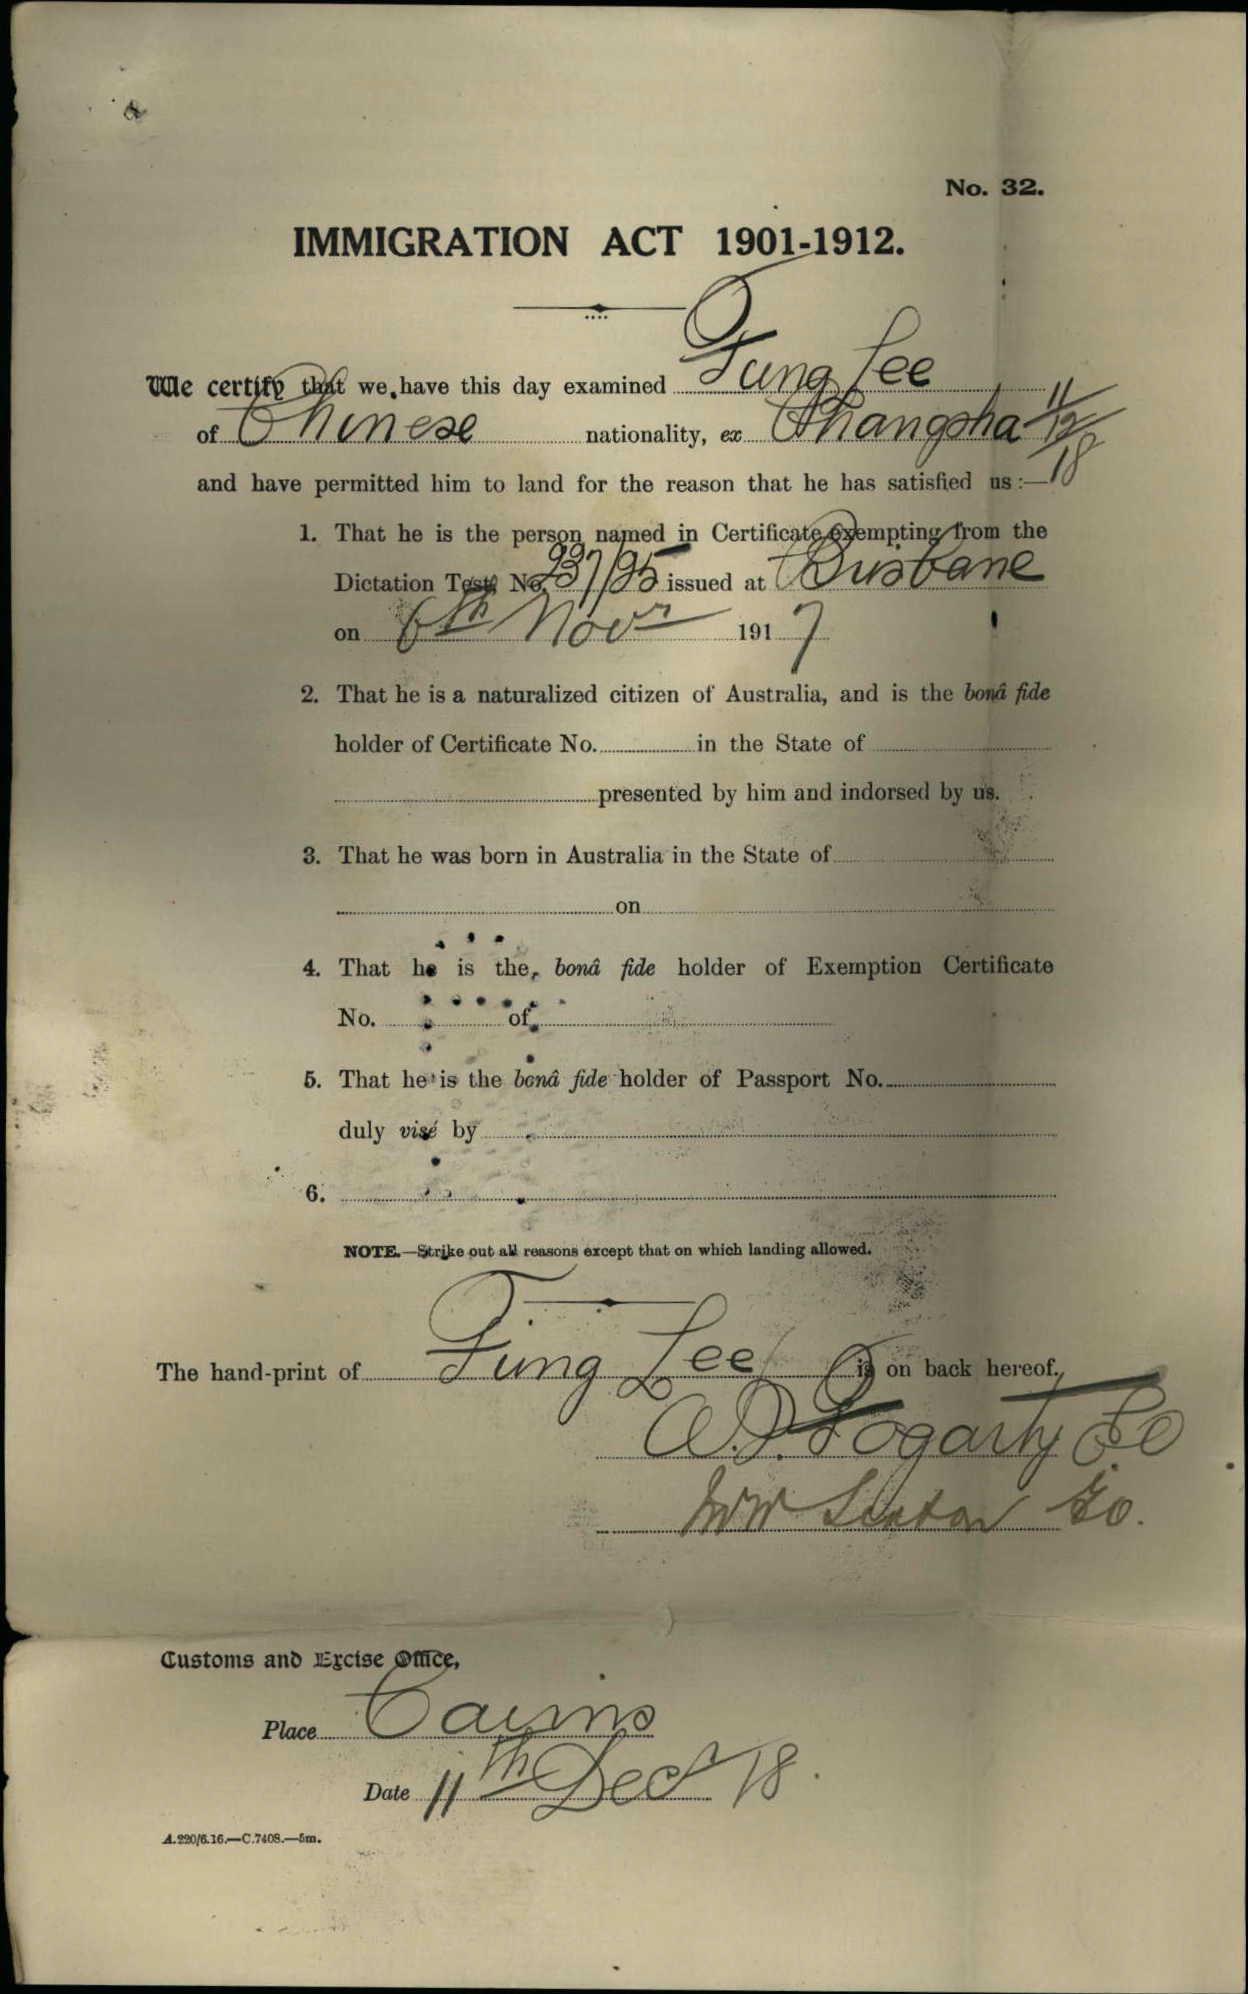 No. 32.
IMMIGRATION ACT 1901-1912.
We certify that we have this day examined Fung Lee
of Chinese nationality, ex Changsha 11/12/18
and have permitted him to land for the reason that he has satisfied us :—
1. That he is the person named in Certificate exempting from the
Dictation Test, No. 237/95 issued at Brisbane
on 6th Novr 1917
2. That he is a naturalized citizen of Australia, and is the bonâ fide
holder of Certificate No. in the State of
presented by him and indorsed by us.
3. That he was born in Australia in the State of
on
4. That he is the bonâ fide holder of Exemption Certificate
No. of
5. That he is the bonâ fide holder of Passport No.
duly visé by
6.
NOTE.—Strike out all reasons except that on which landing allowed.
The hand-print of Fung Lee is on back hereof.
Fogarty
Customs and Excise Office,
Place Cairns
Date 11th Decr 18.
A.220/6.16.—C.7408.—5m.